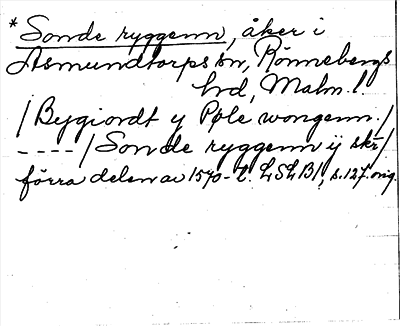 * Sonde ryggenn, åker i
Asmundtorps sn, Rönnebergs
hd, Malm. l.
/Bygiordt y Pple wongenn./
----/Sonde ryggenn ij skr/
förra delen av 1570-t. LSLB1, s. 127. orig.